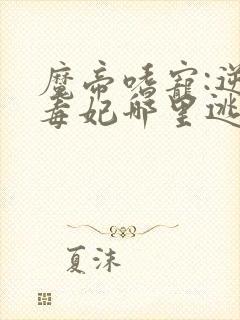 魔帝嗜宠:逆
毒妃哪里逃
夏沫